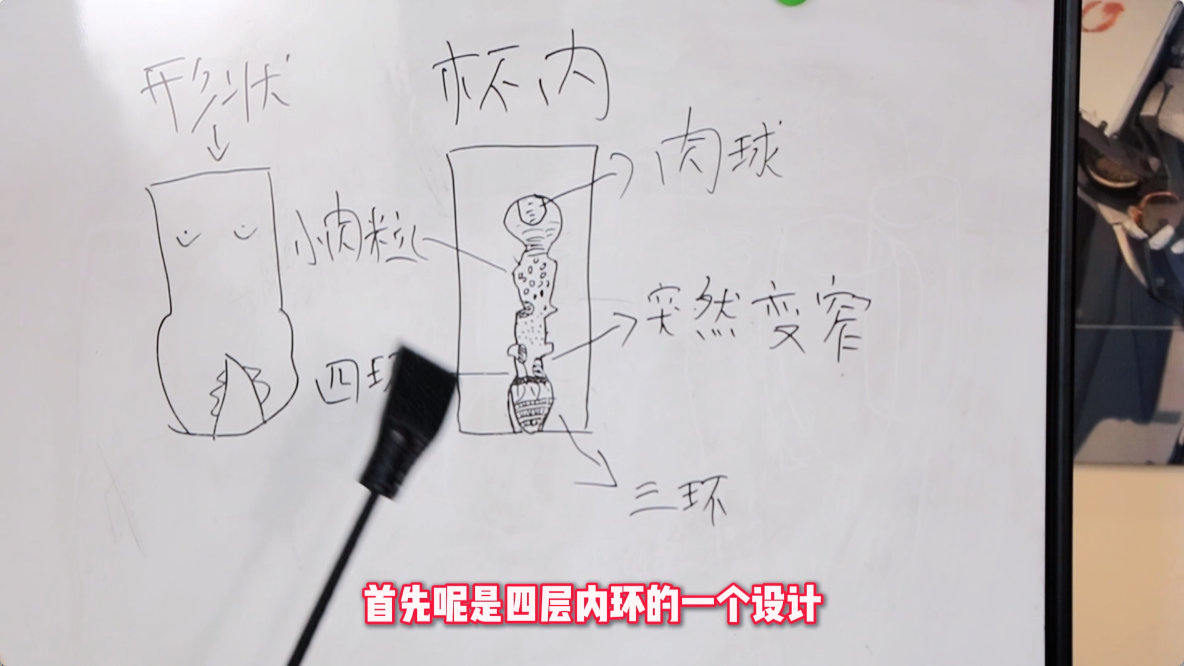 形状
杯内
肉球
小肉粒
突然变窄
四环
三环
首先呢是四层内环的一个设计